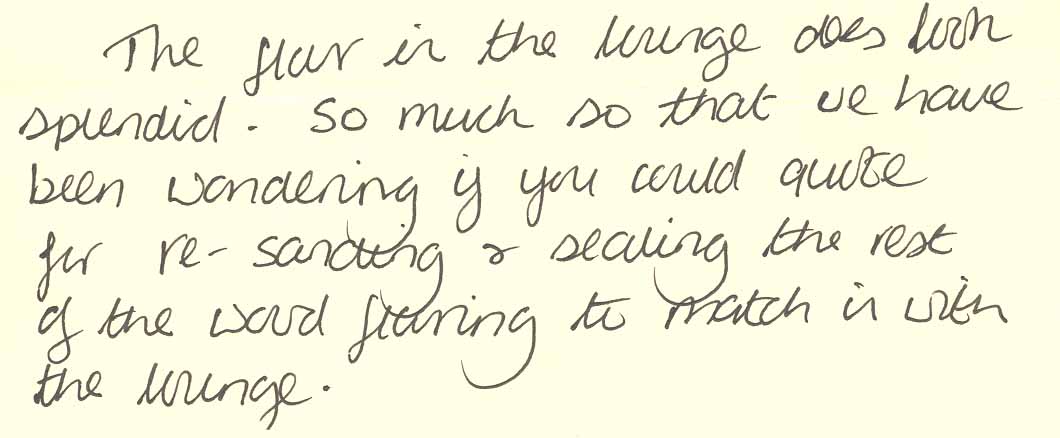 The floor in the lounge does look
splendid. So much so that we have
been wondering if you could quote
for re-sanding & sealing the rest
of the wood flooring to match in with
the lounge.